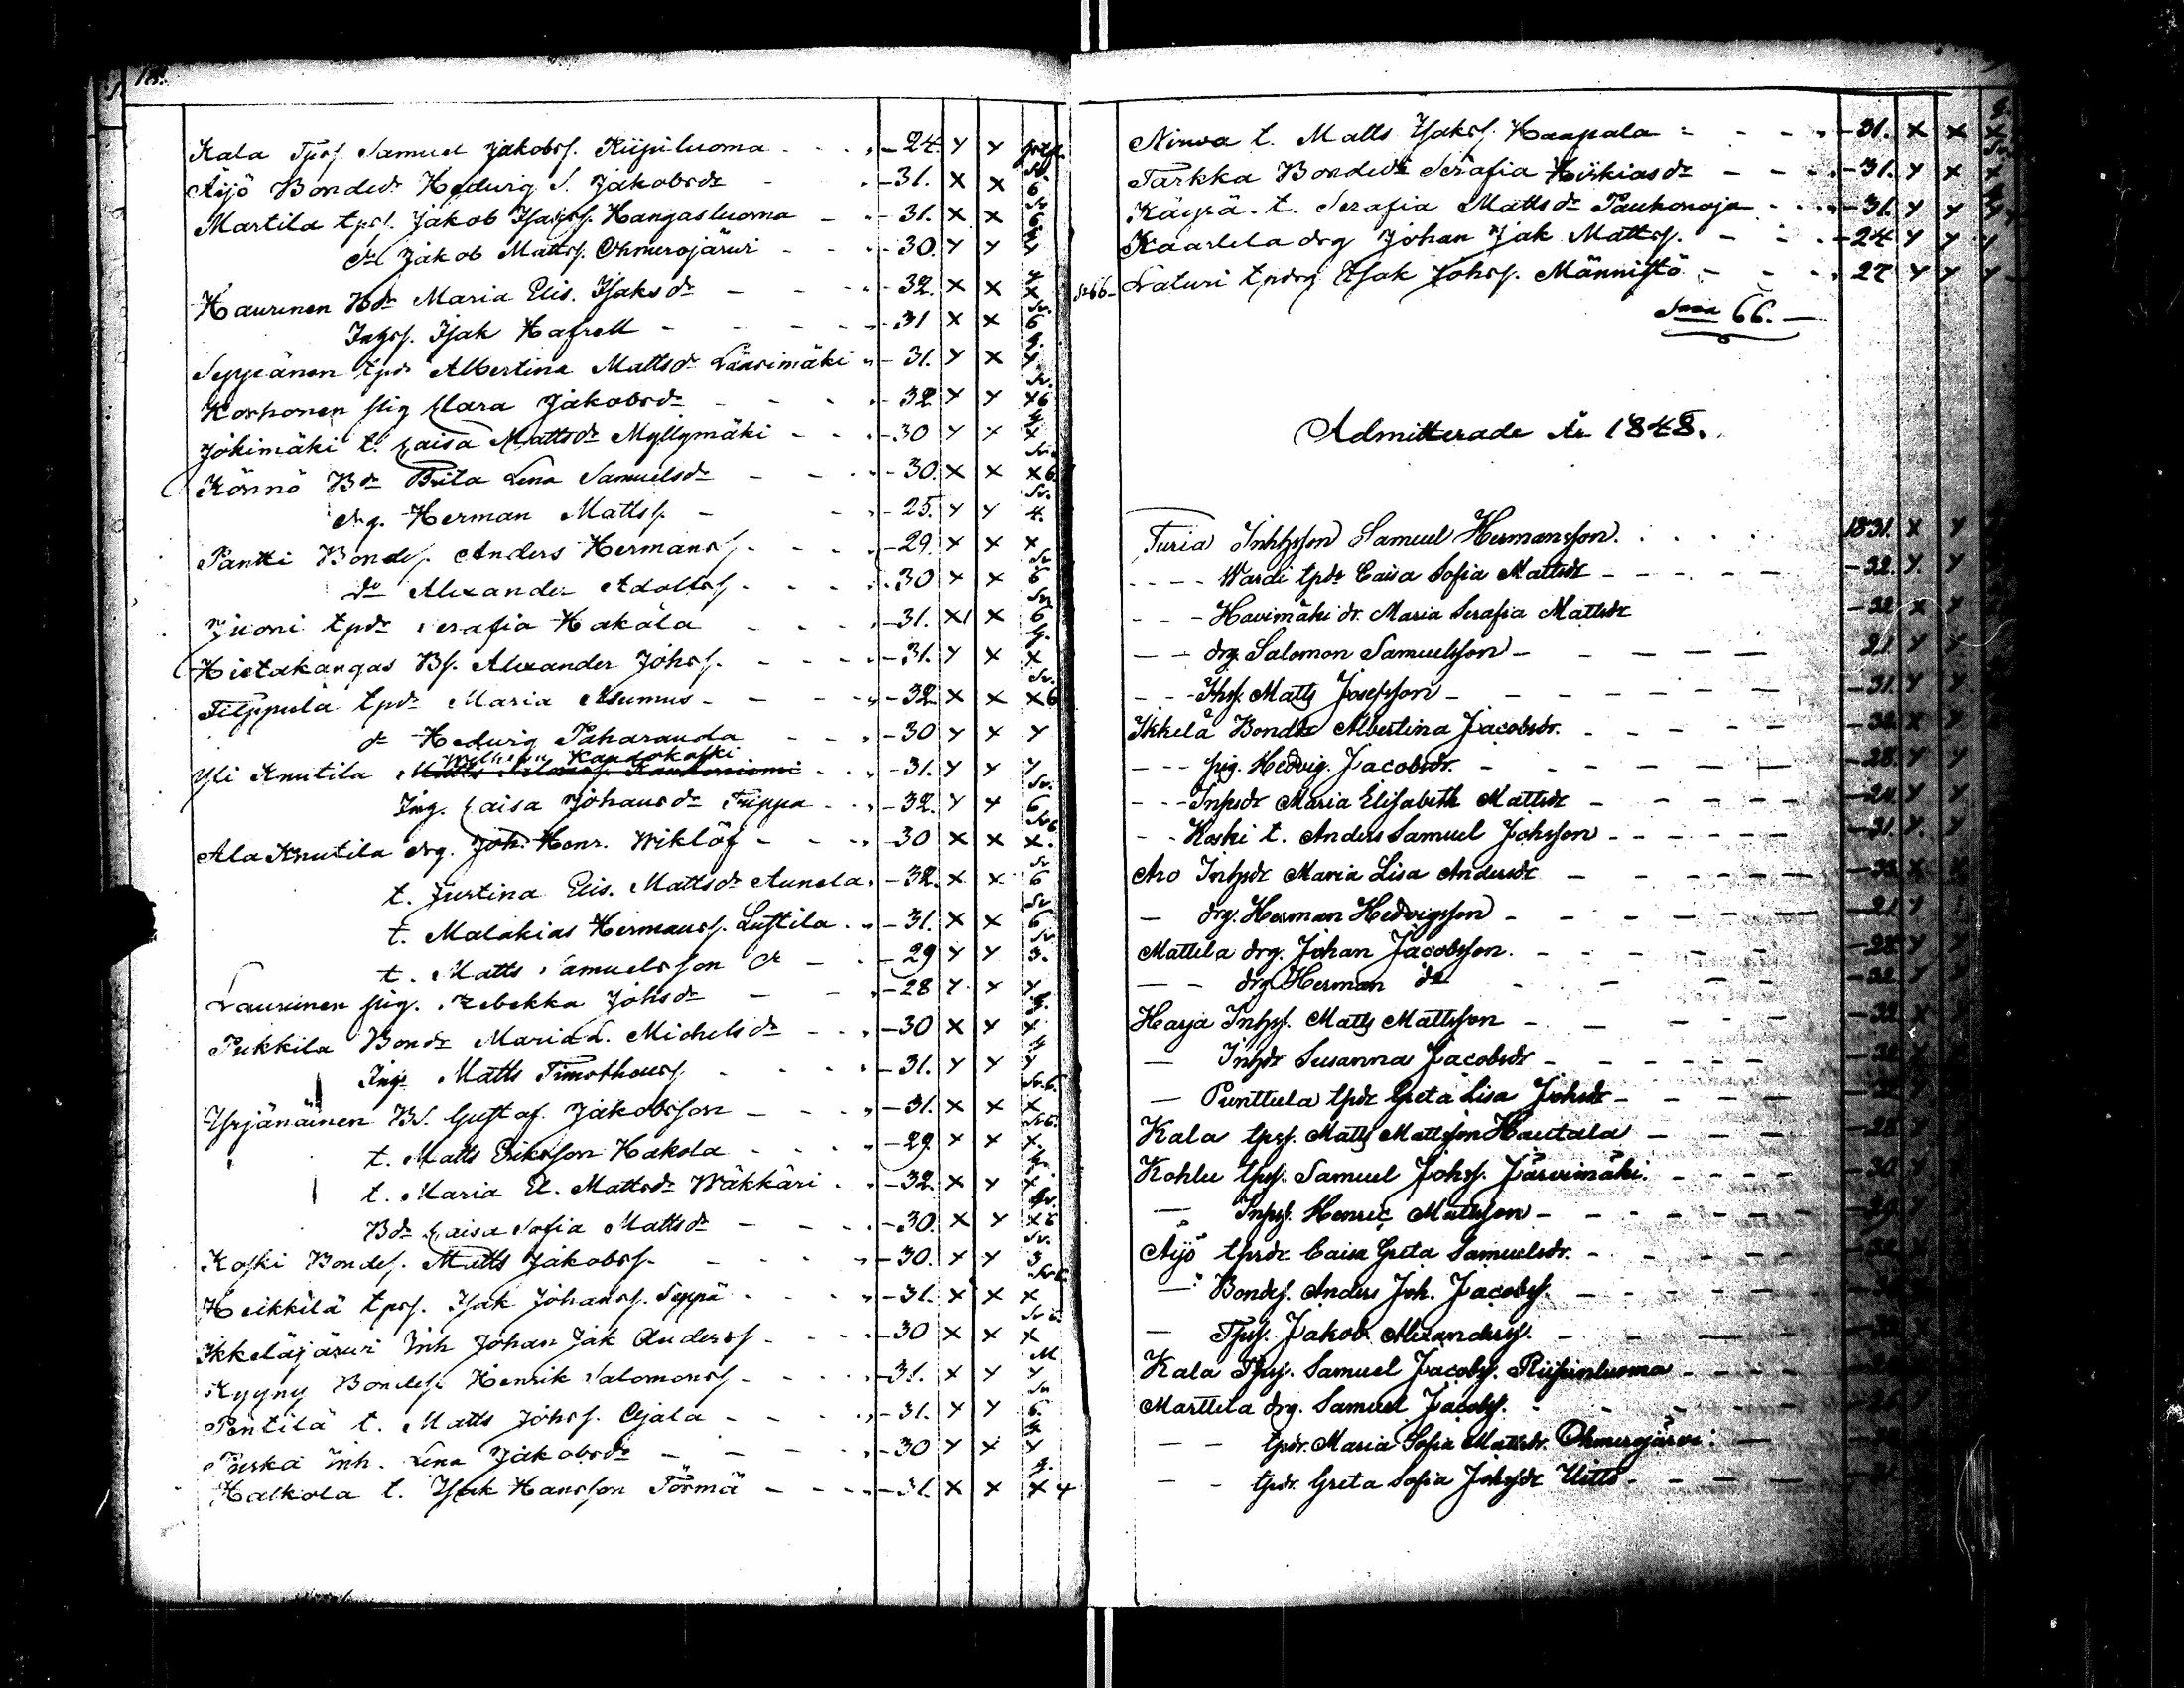 Kala Tpsf. Samuel Jakobsf. Riipiluoma - - - - 24. y y
Äijö Bondedr Hedvig S. Jakobsdr - - - 31. x x 6
Martila tpsf. Jakob Isaksf. Kangasluoma - - - 31. x x 6
dr Jakob Mattsf. Ohmerojärvi - - - 30. y y y
Haurinen Bdr Maria Elis. Isaksdr - - - 32. x x x
Inhsf. Isak Hafrell - - - 31 x x 6
Seppänen tpdr Albertina Mattsdr Länsimäki - 31. y x y
Korhonen pig Clara Jakobsdr - - - 32 y y x6
Jokimäki t. Caisa Mattsdr Myllymäki - - - 30 y y x
Könnö Bdr Brita Lena Samuelsdr - - - 30. x x x6
drg. Herman Mattsf. - - - 25. y y 4.
Pantti Bondsf. Anders Hermansf. - - - 29. x x x
do Alexander Adolfsf. - - - 30 y x 6
Juoni tpdr Serafia Hakala - - - 31. x x 6
Hietakangas Bsf. Alexander Johsf. - - - 31. y x x
Filppula tpdr Maria Asumus - - - 32. x x x6
dr Hedvig Paharauda - - - 30 y x y
Yli Knutila - - - 31. y y y
Ing. Caisa Johansdr Trippa - - - 32. y y 6
Ala Knutila drg. Joh. Henr. Wiklöf - - - 30 x x x.
t. Justina Elis. Mattsdr Aunela - 32. x x 6
t. Malakias Hermansf. Luftila - 31. x x 6
t. Matts Samuelsson dr - - 29 y y 3.
Laurinen pig. Rebekka Johsdr - - - 28 y y y
Pukkila Bondr Maria L. Michelsdr - - - 30 x y x
Ings Matts Timotheusf. - - - 31. y y y
Yrjänäinen Bs. Gustaf Jakobsson - - - 31. x x x
t. Matts Eriksson Hakola - - - 29. x x x
t. Maria El. Mattsdr Wäkkäri - - 32. x y x
Bdr Caisa Sofia Mattsdr - - - 30. x y x6
Koski Bondsf. Matts Jakobsf. - - - 30. y y 3
Heikkilä tpsf. Isak Johansf. Seppä - - - 31. x x x
Ikkeläjärvi Inh Johan Jak Andersf. - - - 30 x x x
Kyyny Bondesf Henrik Salomonsf. - - - 31. x y y
Pentilä t. Matts Johsf. Ojala - - - 31. y y 6.
Puska Inh. Lena Jakobsdr - - - 30 y x y
Halkola t. Isak Hansson Törmä - - - 31. x x x y
Nirwa t. Matts Isaksf. Haapala - - - 31. x x x
Tarkka Bondedr Serafia Hiskiasdr - - - 31. y x x
Käyrä t. Serafia Mattsdr Paukonoja - - - 31. y y y
Kaarlela drg Johan Jak Mattsf. - - - 24 y y y
Laturi tpdrg Isak Johsf. Männistö - - - 27 y y y
Sma 66.
Admitterade År 1848.
Turia Inhysson Samuel Hermansson. - - - 1831. x y
- - - Wardi tpdr Caisa Sofia Mattsdr - - - 32. y. y
- - - Havimäki dr. Maria Serafia Mattsdr - 32 x y
- - drg. Salomon Samuelsson - - - 21 y y
- - - Ihsf. Matts Josefsson - - - 31. y y
Ikkelä Bonddr Albertina Jacobsdr. - - - 32 x y
- - - pig. Hedvig. Jacobsdr. - - - 28. y y
- - - Inhsdr Maria Elisabeth Mattsdr - - - 24 y y
- - Koski t. Anders Samuel Johsson - - - 31. y. y
Aro Inhsdr Maria Lisa Andersdr - - - 32 x x
- drg. Herman Hedvigsson - - - 21 y
Mattila drg. Johan Jacobsson. - - - 28 y y
- - drg Herman do - - - 32 y y
Harja Inhsf. Matts Mattsson - - - 32 x y
- Inhdr Susanna Jacobsdr - - -
- Punttula tpdr Greta Lisa Johsdr - - -
Kala tpsf. Matts Mattsson Hautala - - - 28
Kohlu tpsf. Samuel Johsf. Järvimäki. - - - 30
- Inhsf. Henric Mattsson - - - 29
Äijö tpsdr Caisa Greta Samuelsdr. - - -
- Bondsf. Anders Joh. Jacobsf. - - -
- Tpsf. Jakob Alexandersf. - - -
Kala Tpsf. Samuel Jacobsf. Riipinluoma - - -
Marttila drg. Samuel Jacobsf. - - -
- - tpdr. Maria Sofia Mattsdr. Ohmerojärvi. -
- - tpdr. Greta Sofia Johsdr Uitto - - -